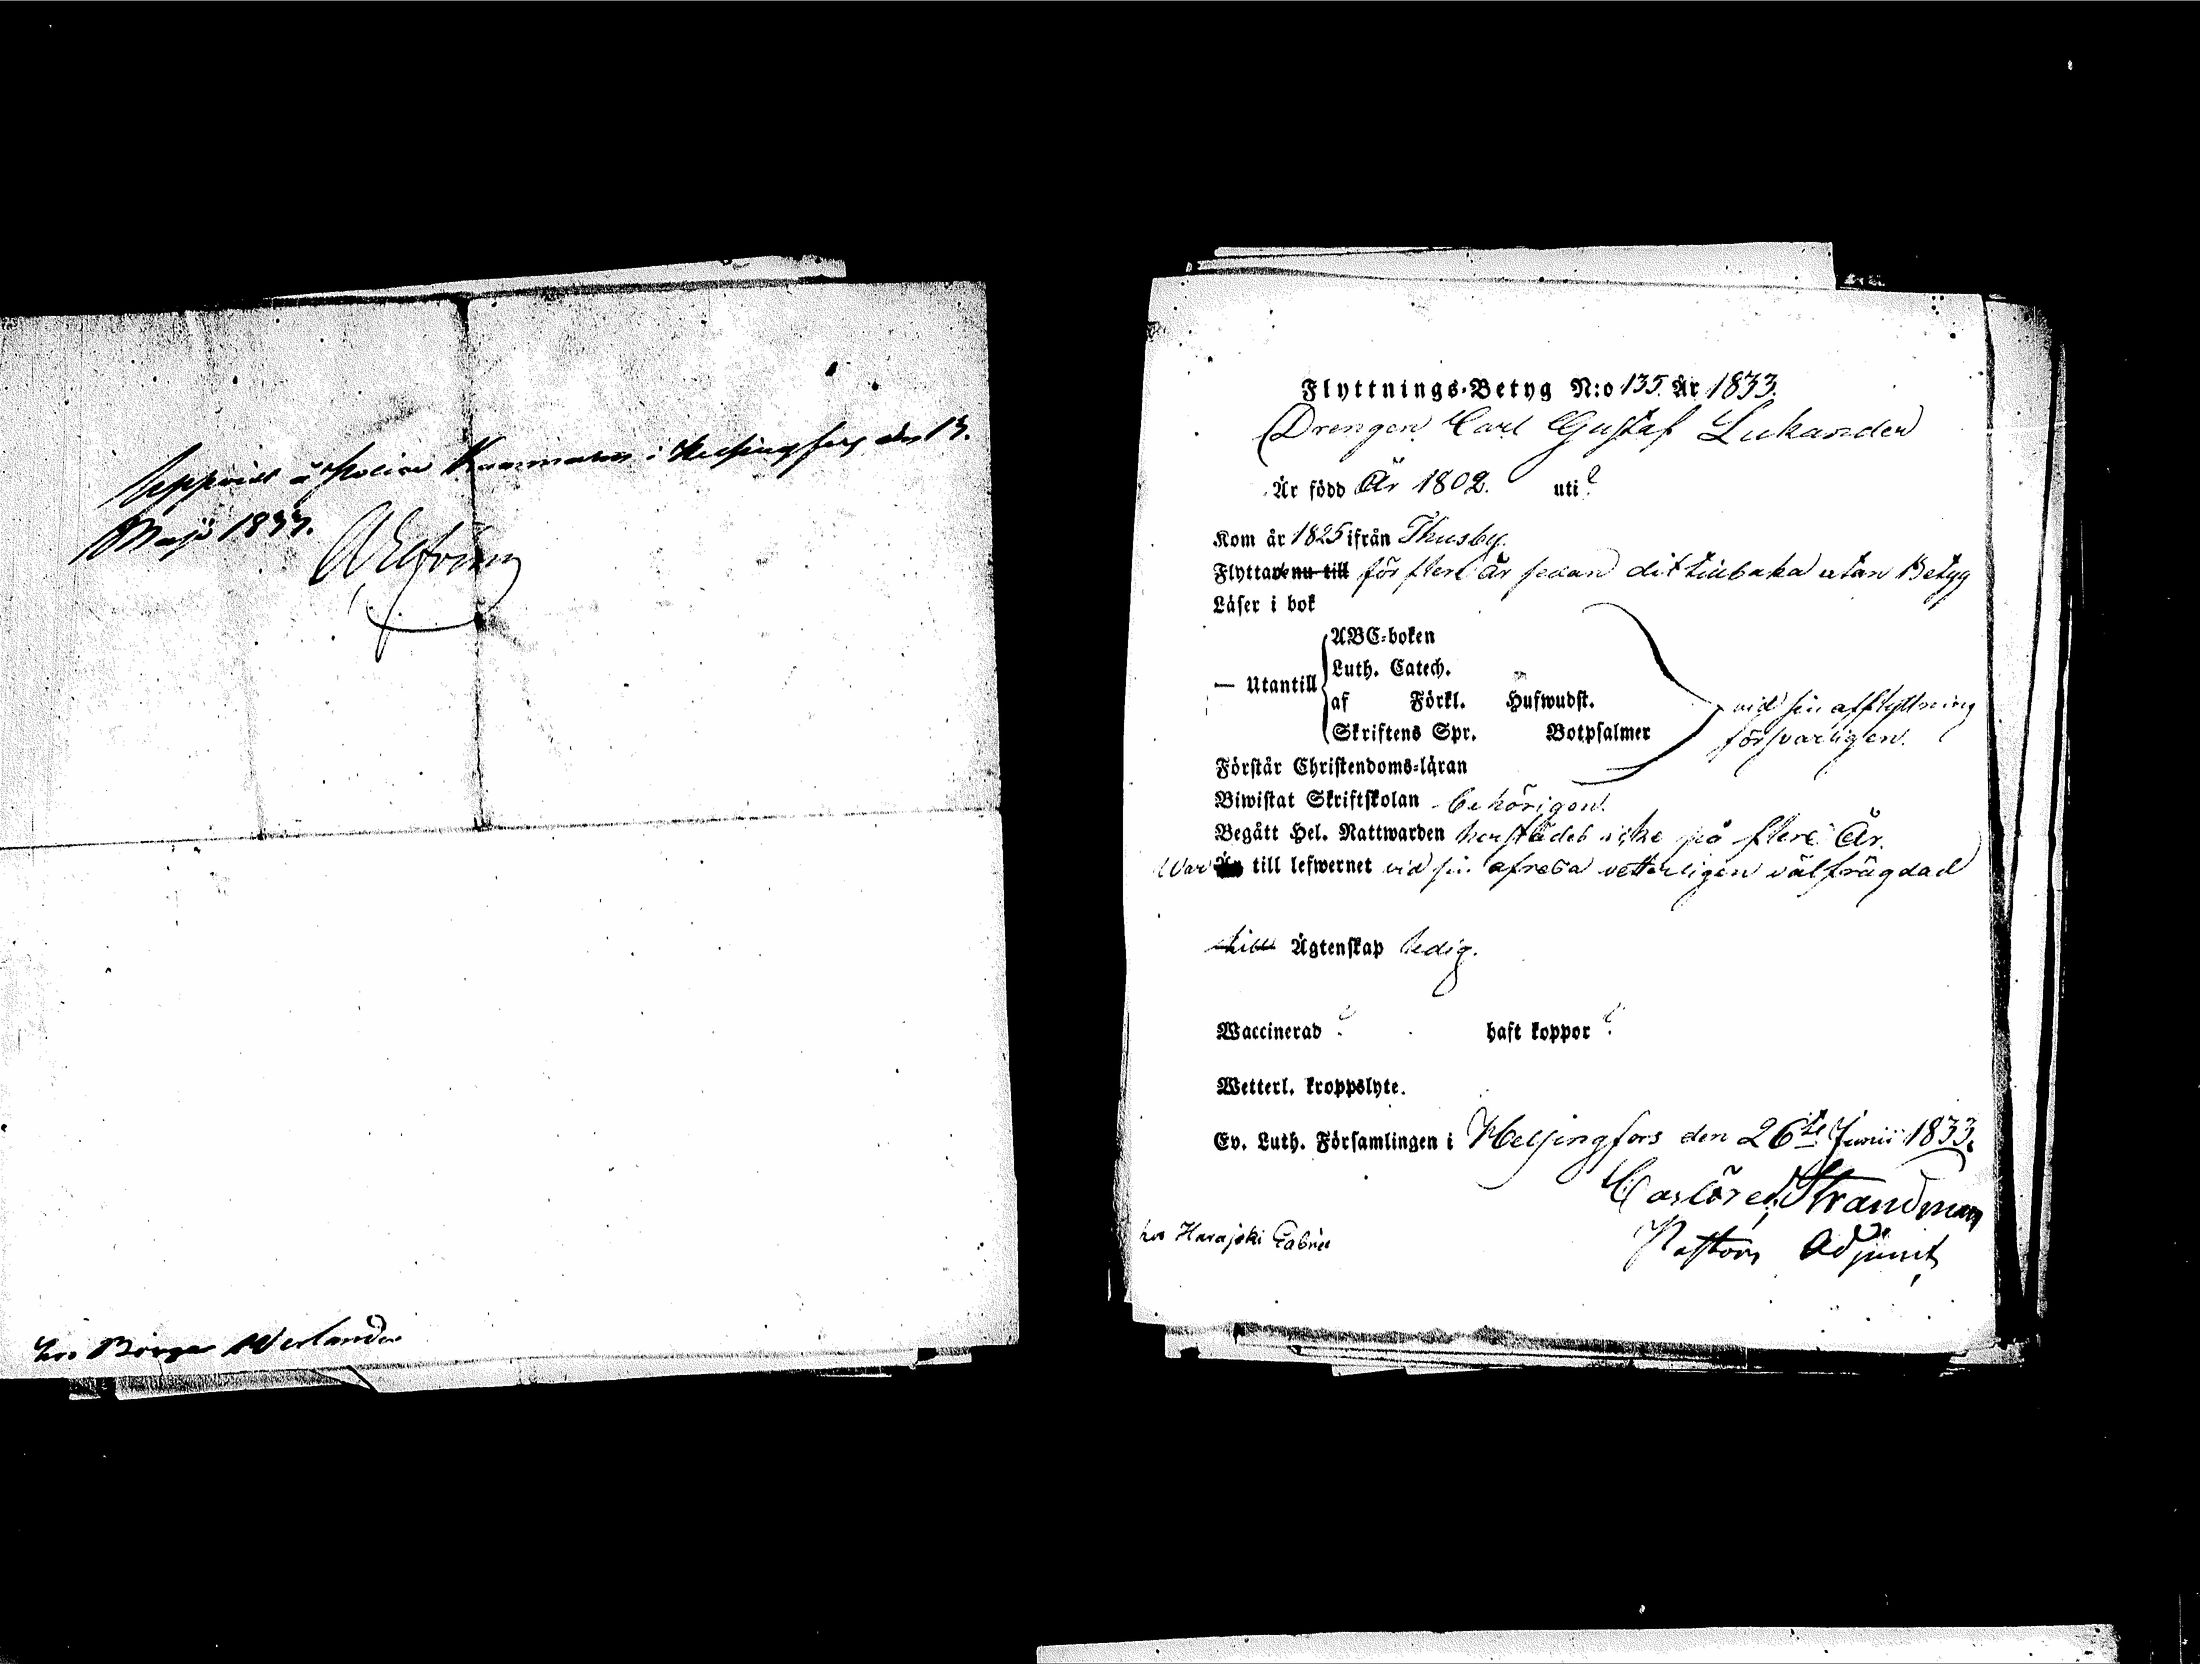 Uppvist å Police Kammaren i Helsingfors den 13.
Maji 1833.
hos Borgar Werlander
Flyttnings-Betyg N:o 135. År 1833.
Drengen Carl Gustaf Lukander
Är född År 1802. uti ?
Kom år 1825 ifrån Thusby.
Flyttade nu till för flere År sedan dit tillbaka utan Betyg
Läser i bok
ABC-boken
Luth. Catech.
— Utantill
af Förkl. Hufwudst.
vid sin afflyttning
Skriftens Spr. Botpsalmer
försvarligen.
Förstår Christendoms-läran
Biwistat Skriftskolan behörigen.
Begått Hel. Nattwarden härstädes icke på flere År.
War till lefwernet vid sin afresa vetterligen välfrägdad
till Ägtenskap ledig.
Waccinerad ? haft koppor ?
Wetterl. kroppslyte.
Ev. Luth. Församlingen i Helsingfors den 26te Junii 1833.
Strandman
Pastors Adjunct
hos Harajoki Gabriel